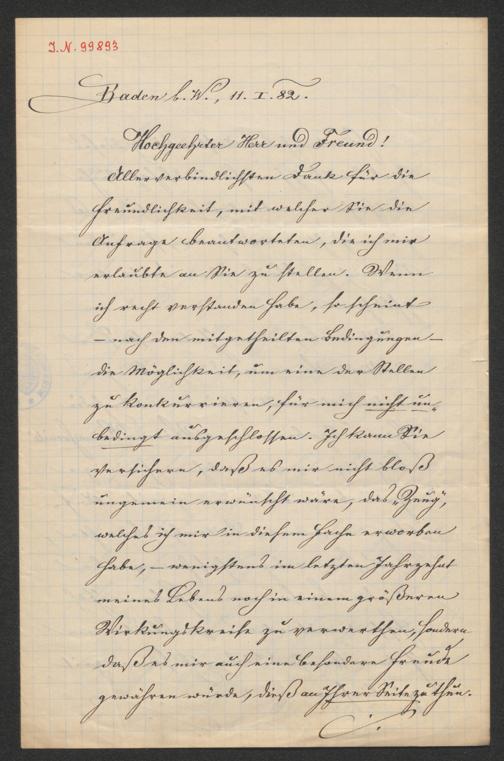 J.N. 99893
Baden b. W., 11. I. 82.
Hochgeehrter Herr und Freund!
Allerverbindlichsten Dank für die
Freundlichkeit, mit welcher Sie die
Anfrage beantworteten, die ich mir
erlaubte an Sie zu stellen. Wenn
ich recht verstanden habe, so scheint
– nach den mitgetheilten Bedingungen –
die Möglichkeit, um eine der Stellen
zu konkurrieren, für mich nicht un-
bedingt ausgeschlossen. Ich kann Sie
versichern, daß es mir nicht bloß
ungemein erwünscht wäre, das „Zeug",
welches ich mir in diesem Fache erworben
habe, – wenigstens im letzten Jahrzehnt
meines Lebens noch in einem größeren
Wirkungskreise zu verwerthen, sondern
daß es mir auch eine besondere Freude
gewähren würde, dieß an Ihrer Seite zu thun.